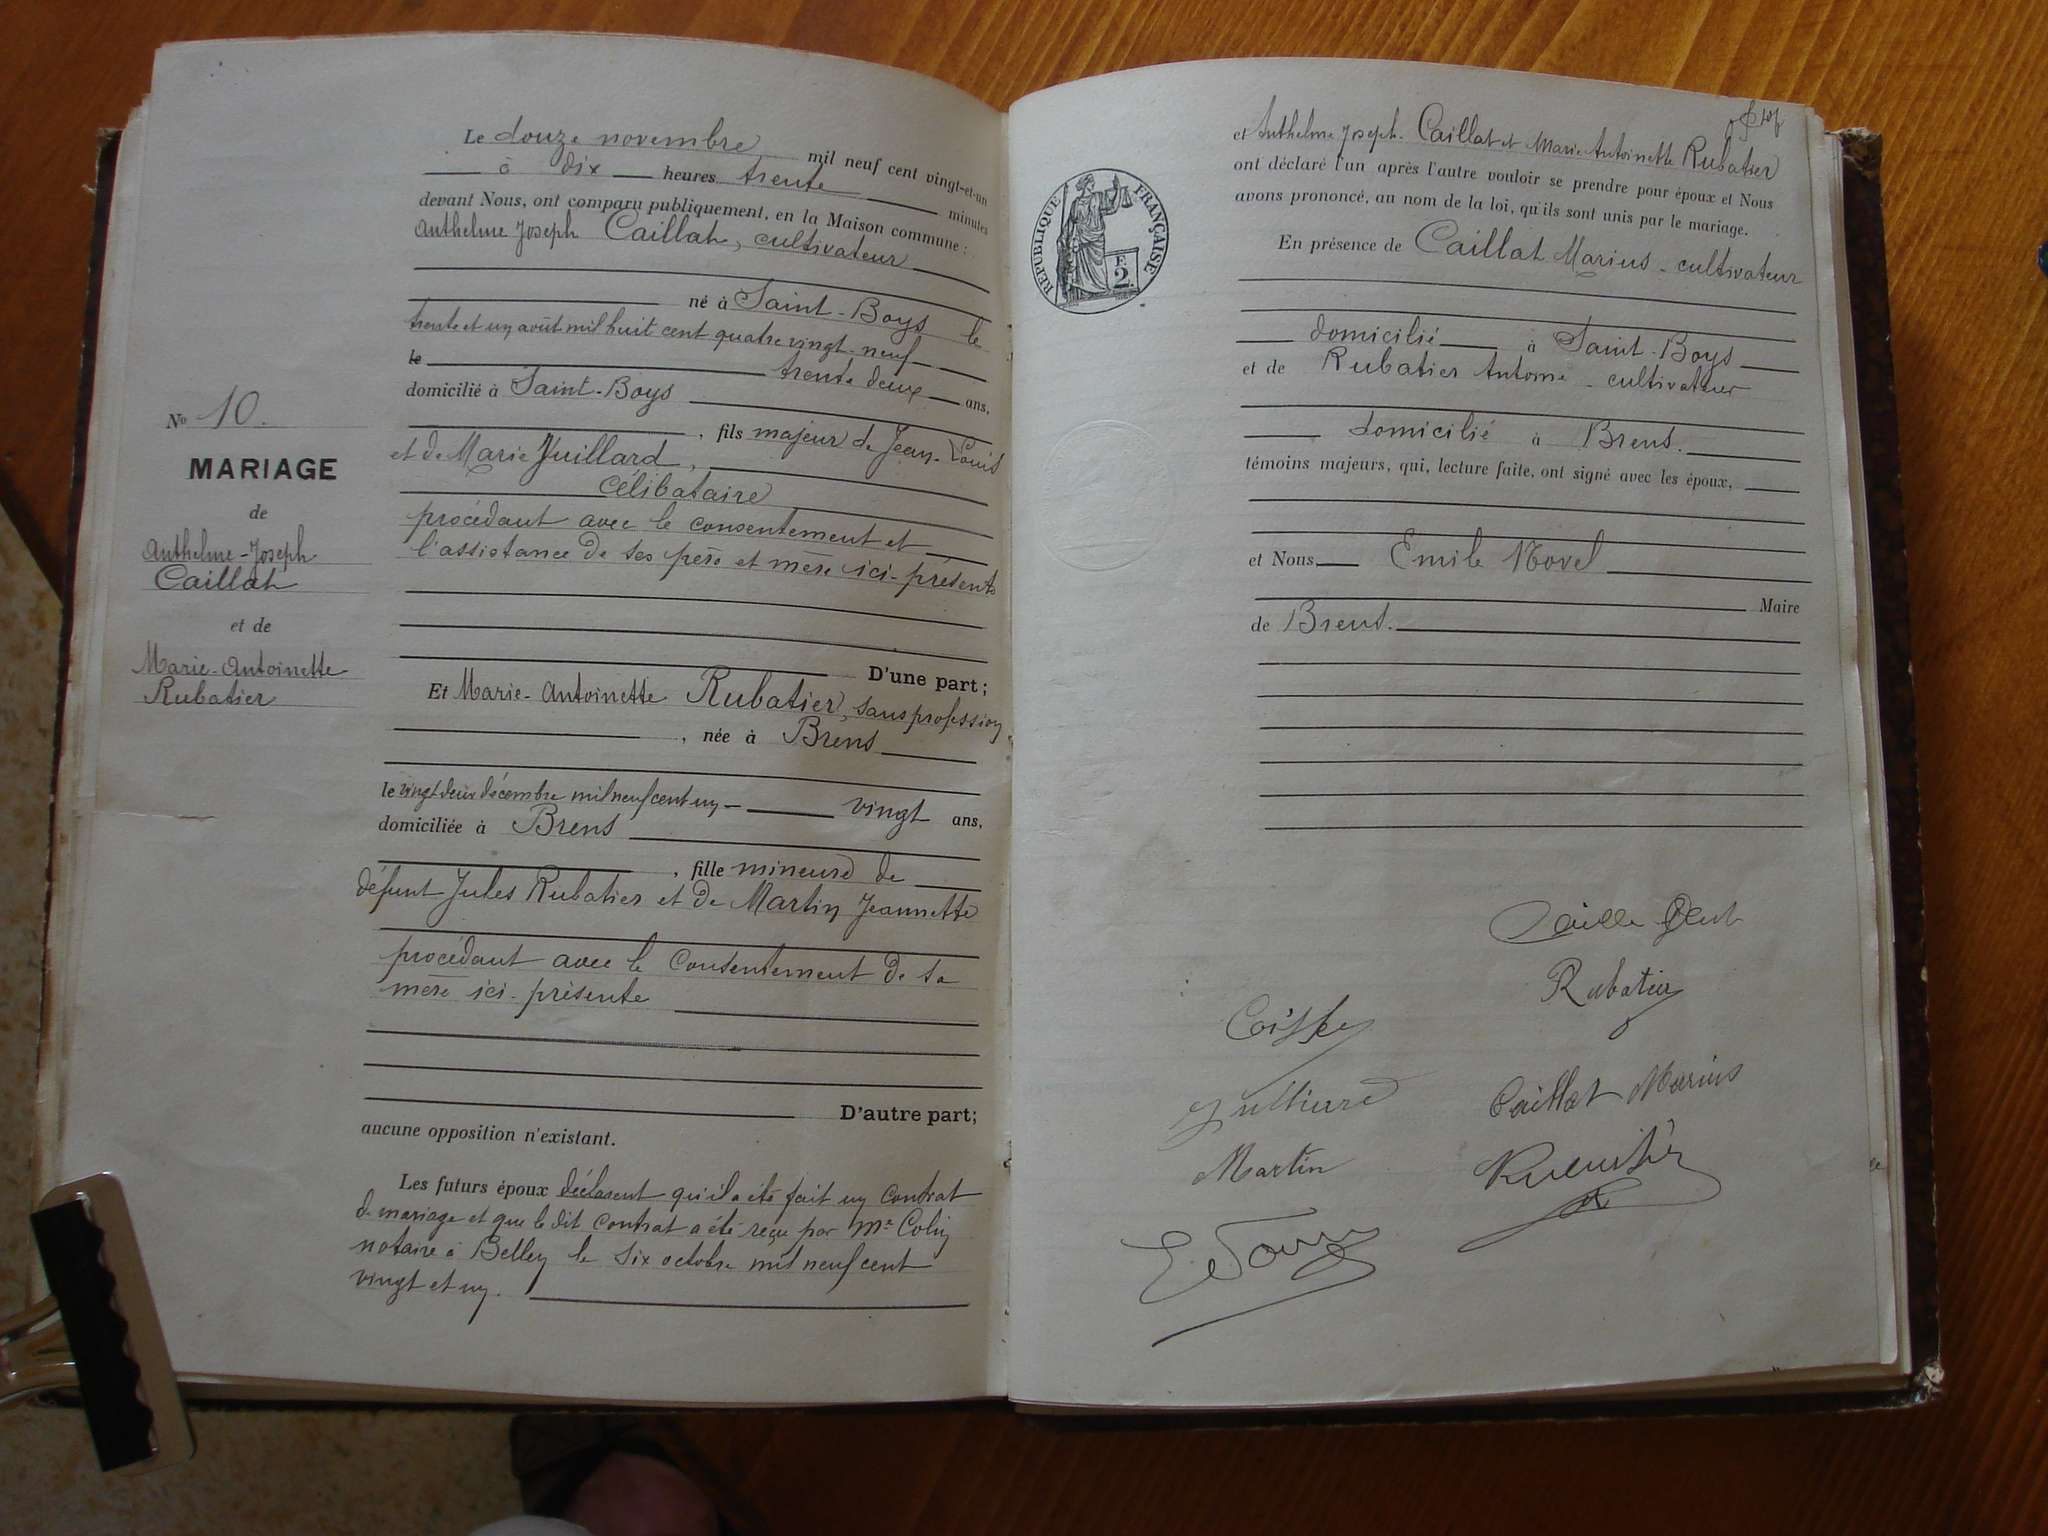 Le douze novembre mil neuf cent vingt-et-un
à dix heures trente minutes
devant Nous, ont comparu publiquement, en la Maison commune :
Anthelme Joseph Caillat, cultivateur
né à Saint-Boys le
trente et un août mil huit cent quatre vingt-neuf
le trente deux ans,
domicilié à Saint-Boys
, fils majeur de Jean-Louis
et de Marie Juillard,
Célibataire
procédant avec le consentement et
l'assistance de ses père et mère ici-présents
D'une part;
No 10.
MARIAGE
de
Anthelme-Joseph
Caillat
et de
Marie-Antoinette
Rubatier
Et Marie-Antoinette Rubatier, sans profession
, née à Brens
le vingt deux décembre mil neuf cent un vingt ans,
domiciliée à Brens
, fille mineure de
défunt Jules Rubatier et de Martin Jeannette
procédant avec le consentement de sa
mère ici-présente
D'autre part;
aucune opposition n'existant.
Les futurs époux déclarent qu'il a été fait un contrat
de mariage et que le dit contrat a été reçu par Me Colin
notaire à Belley le six octobre mil neuf cent
vingt et un.
et Anthelme Joseph Caillat et Marie Antoinette Rubatier
ont déclaré l'un après l'autre vouloir se prendre pour époux et Nous
avons prononcé, au nom de la loi, qu'ils sont unis par le mariage.
RÉPUBLIQUE FRANÇAISE
F.
2.
En présence de Caillat Marius - cultivateur
domicilié à Saint-Boys
et de Rubatier Antoine - cultivateur
domicilié à Brens.
témoins majeurs, qui, lecture faite, ont signé avec les époux,
et Nous Emile Novel
Maire
de Brens.
Rubatier
Caillat Marius
Martin